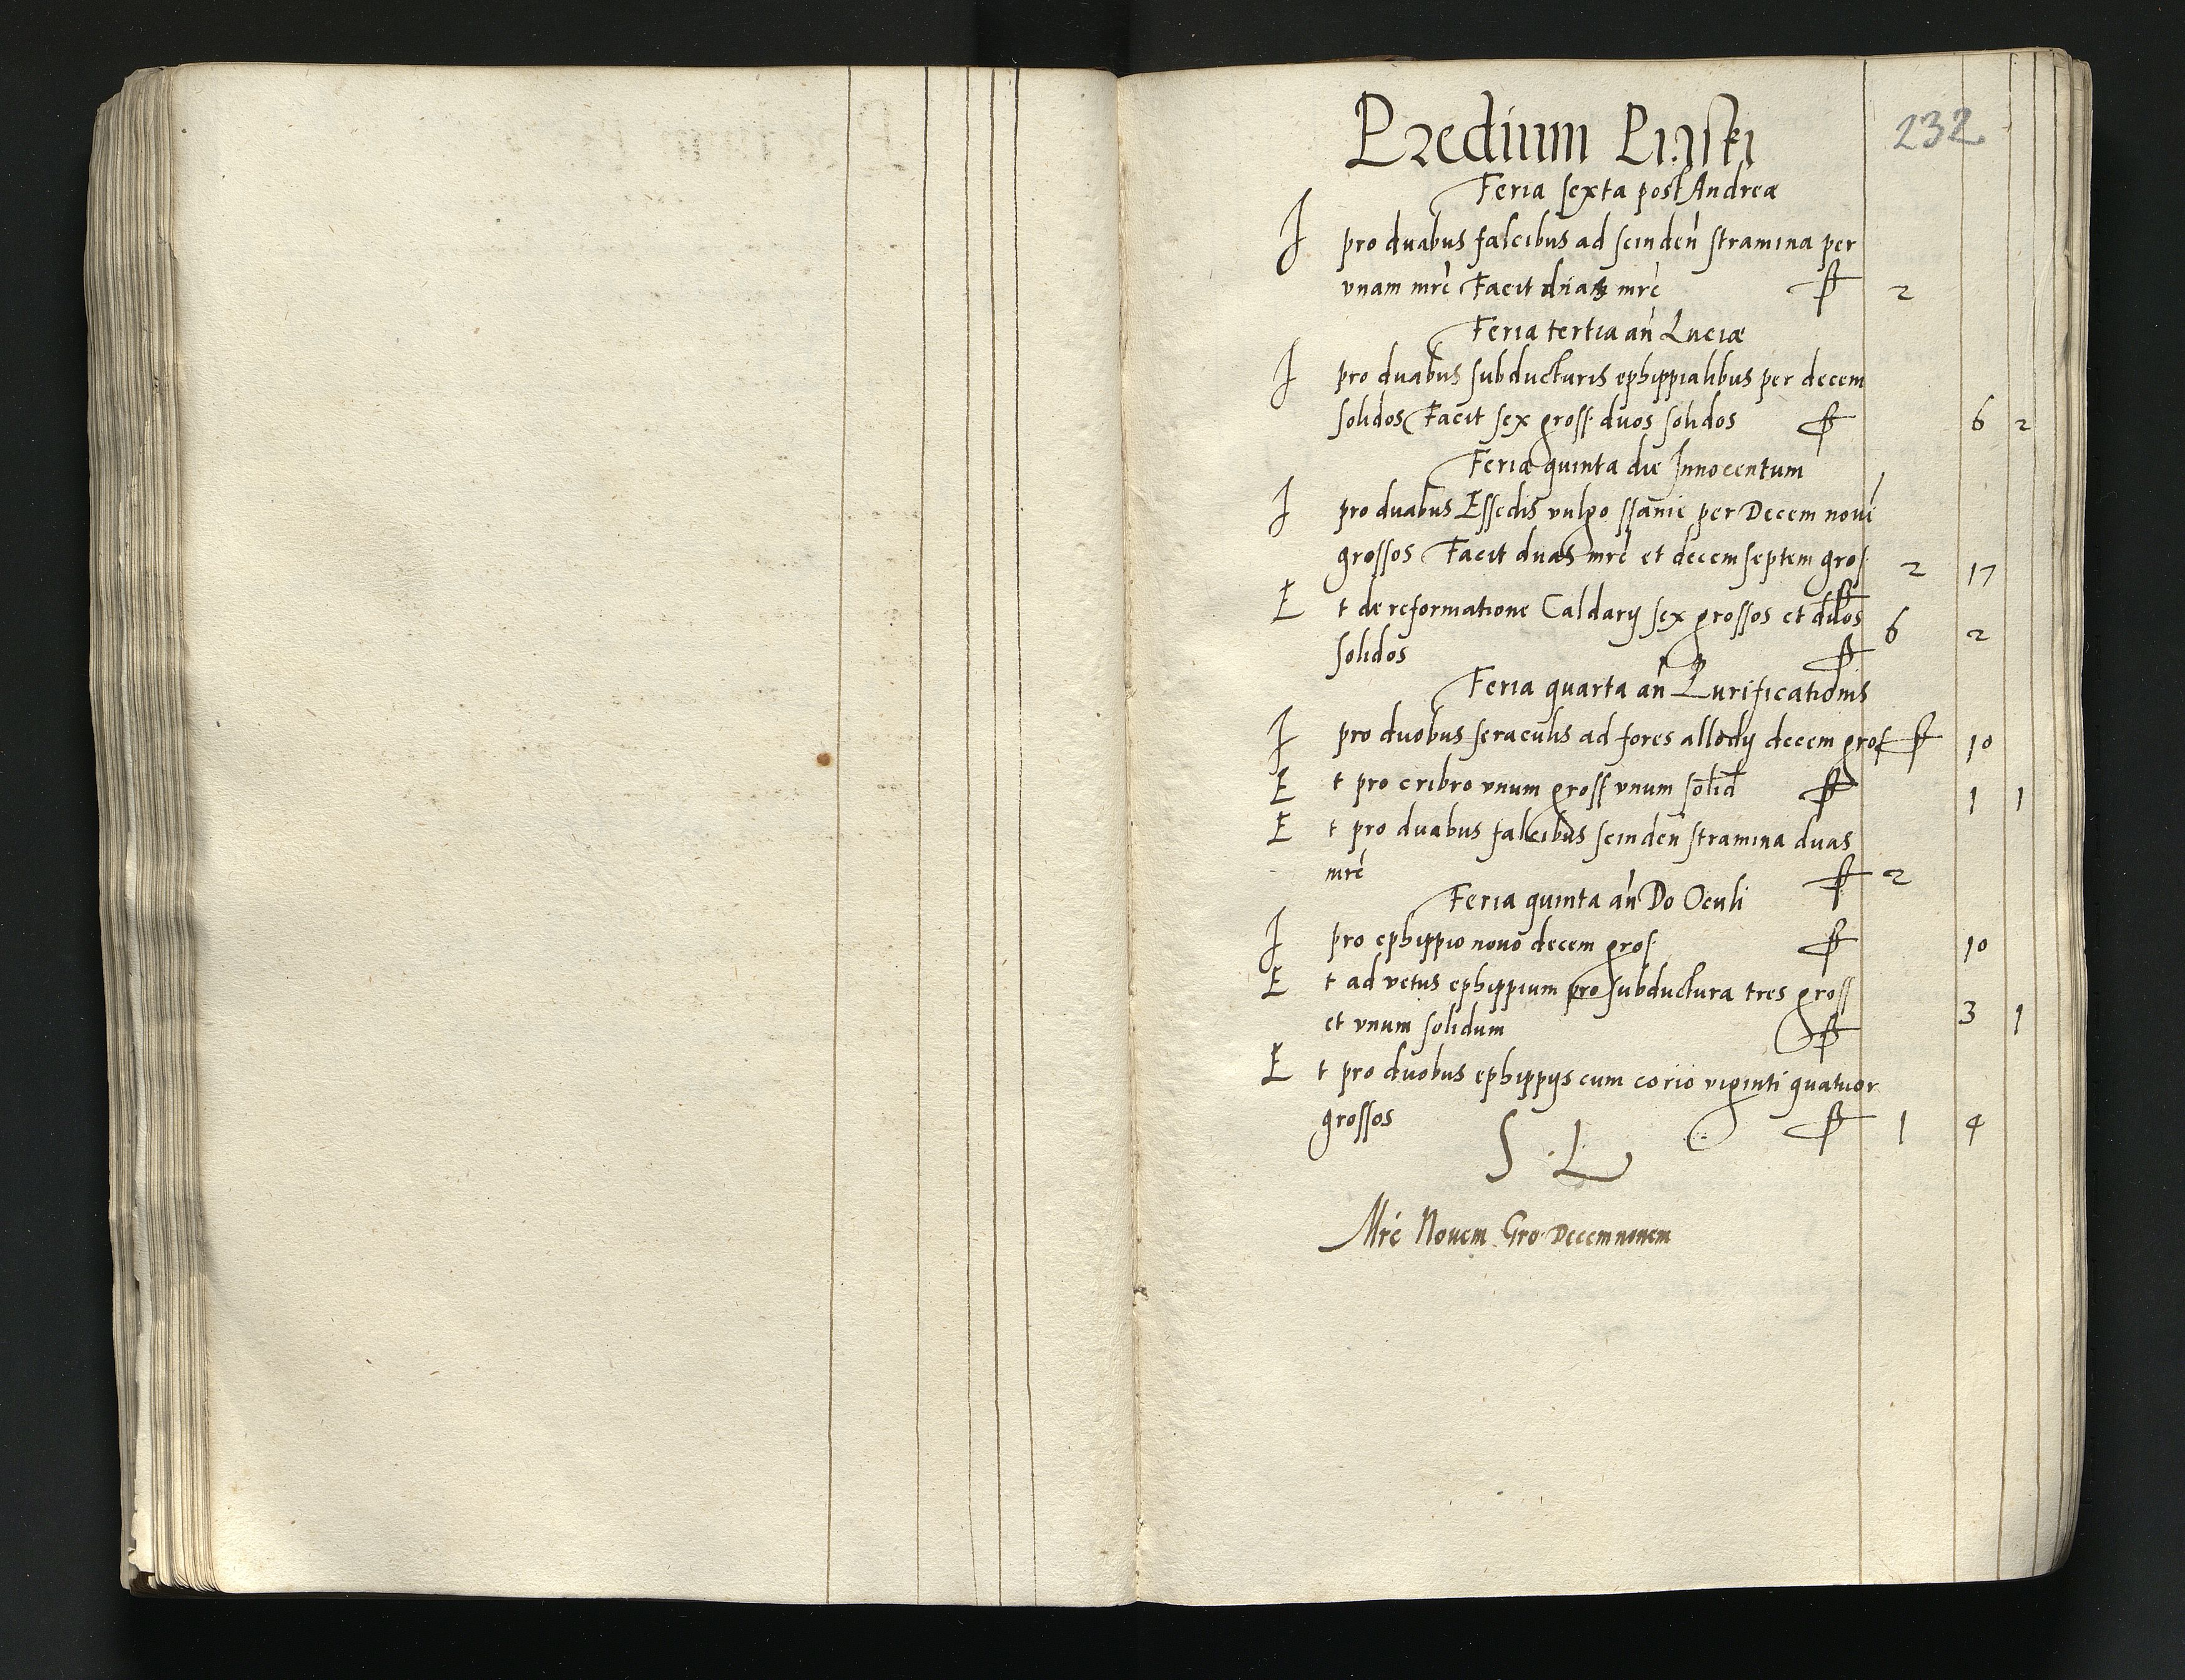 Predium Pijski
232
Feria sexta post Andreæ
I pro duabus falcibus ad scinden stramina per
vnam mrc Facit duas mrc ff 2
Feria tertia an Luciæ
I pro duabus subducturis ephippialibus per decem
solidos Facit sex gross. duos solidos ff 6 2
Feria quinta die Innocentum
I pro duabus Essedis vulgo ssanie per Decem novē
grossos Facit duas mrc et decem septem gros. ff 2 17
Et de reformatione Caldarij sex grossos et duos
solidos ff 6 2
Feria quarta an Purificationis
I pro duobus seraculis ad fores allodij decem gros ff 10
Et pro cribro vnum gross vnum solid ff 1 1
Et pro duabus falcibus scinden stramina duas
mrc ff 2
Feria quinta an Do Oculi
I pro ephippio novo decem gros. ff 10
Et ad vetus ephippium pro subductura tres gross
et vnum solidum ff 3 1
Et pro duobus ephippijs cum corio viginti quatuor
grossos ff 1 4
S. L
Mrc Novem Gro. Decemnovem